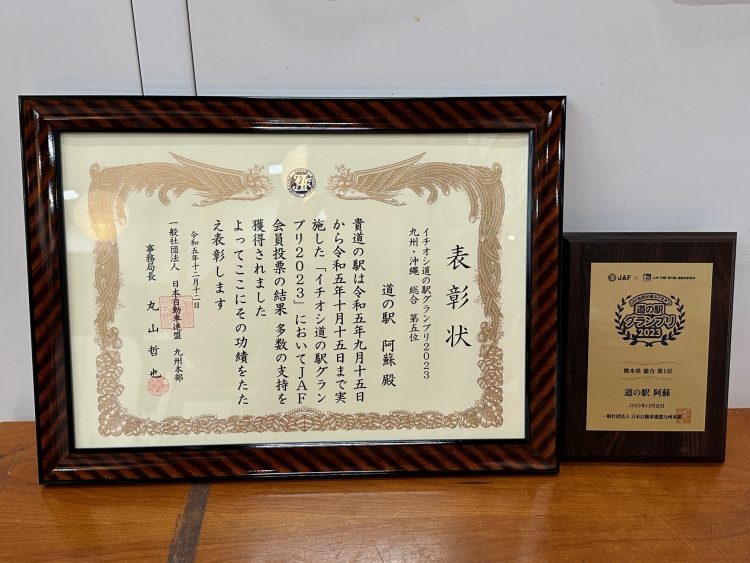 表彰状
イチオシ道の駅グランプリ2023
九州・沖縄 総合 第五位
道の駅 阿蘇 殿
貴道の駅は令和五年九月十五日
から令和五年十月十五日まで実
施した「イチオシ道の駅グラン
プリ2023」においてJAF
会員投票の結果 多数の支持を
獲得されました
よってここにその功績をたた
え表彰します
令和五年十二月十二日
一般社団法人 日本自動車連盟 九州本部
事務局長 丸山哲也
JAF ×
道の駅
グランプリ
2023
熊本県 総合 第1位
道の駅 阿蘇
2023年12月吉日
一般社団法人 日本自動車連盟九州本部